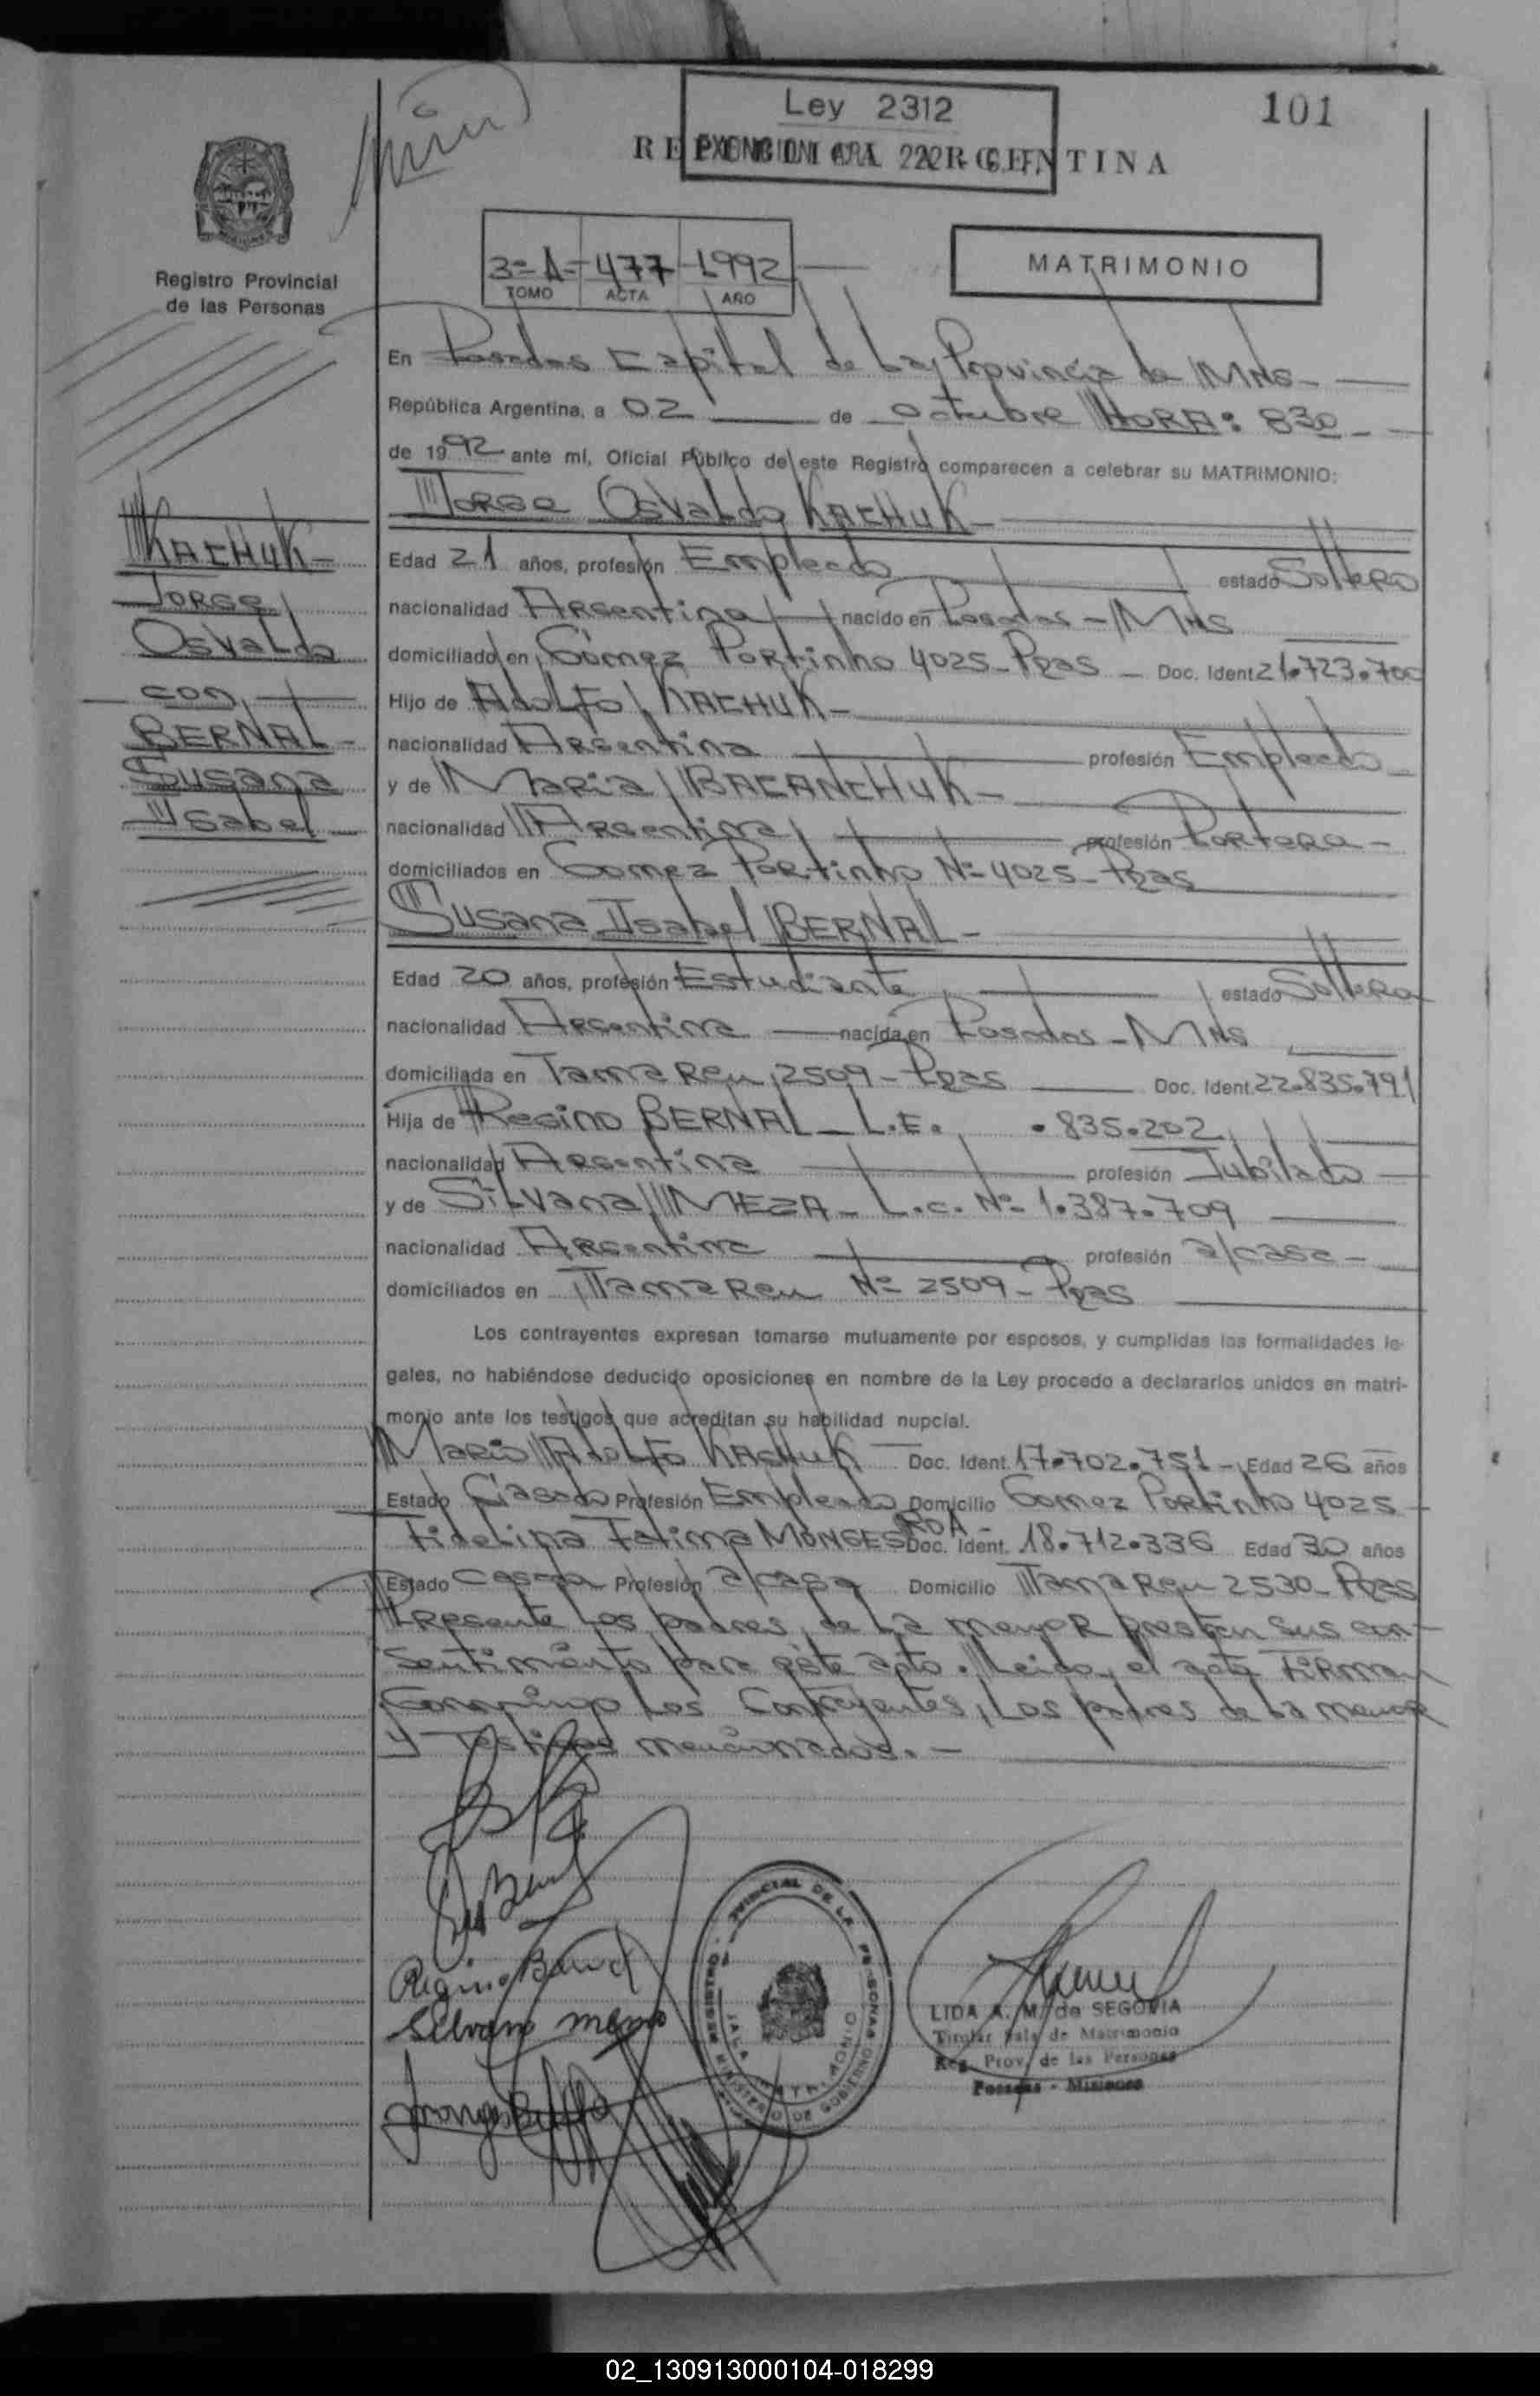 Ley 2312
101
REPUBLICA ARGENTINA
EXENCION ART. 222
Registro Provincial
de las Personas
3º A - 477 - 1992
TOMO ACTA AÑO
MATRIMONIO
En Posadas Capital de La Provincia de Mnes -
República Argentina, a 02 de Octubre HORA: 830 -
de 1992 ante mí, Oficial Público de este Registro comparecen a celebrar su MATRIMONIO:
Jorge Osvaldo KACHUK -
KACHUK -
Jorge
Osvaldo
con
BERNAL -
Susana
Isabel -
Edad 21 años, profesión Empleado estado Soltero
nacionalidad Argentina nacido en Posadas - Mnes
domiciliado en Gómez Portinho 4025 - Pdas - Doc. Ident. 21.723.700
Hijo de Adolfo KACHUK -
nacionalidad Argentina profesión Empleado
y de Maria BACANCHUK -
nacionalidad Argentina profesión Portera -
domiciliados en Gomez Portinho Nº 4025 - Pdas
Susana Isabel BERNAL -
Edad 20 años, profesión Estudiante estado Soltera
nacionalidad Argentina nacida en Posadas - Mnes
domiciliada en Tama Reu 2509 - Pdas Doc. Ident. 22.835.791
Hija de Regino BERNAL - L.E. .835.202
nacionalidad Argentina profesión Jubilado
y de Silvana MEZA - L.C. Nº 1.387.709
nacionalidad Argentina profesión a/casa -
domiciliados en Tama Reu Nº 2509 - Pdas
Los contrayentes expresan tomarse mutuamente por esposos, y cumplidas las formalidades le-
gales, no habiéndose deducido oposiciones en nombre de la Ley procedo a declararlos unidos en matri-
monio ante los testigos que acreditan su habilidad nupcial.
Mario Adolfo KACHUK Doc. Ident. 17.702.751 - Edad 26 años
Estado Casado Profesión Empleado Domicilio Gomez Portinho 4025 -
Fidelina Fatima MONGES ROA - Doc. Ident. 18.712.336 Edad 30 años
Estado Casada Profesión a/casa Domicilio Tama Reu 2530 - Pdas
Presente los padres de la menor prestan sus con-
sentimiento para este acto. Leido el acta Firman
Conmingo los Contrayentes, Los padres de la menor
y Testigos mencionados. -
Regino Bernal
Silvano meza
REGISTRO PROVINCIAL DE LA PERSONAS
SALA MATRIMONIO
MINISTERIO DE GOBIERNO
LIDA A. M. de SEGOVIA
Titular Sala de Matrimonio
Reg. Prov. de las Personas
Posadas - Misiones
02_130913000104-018299